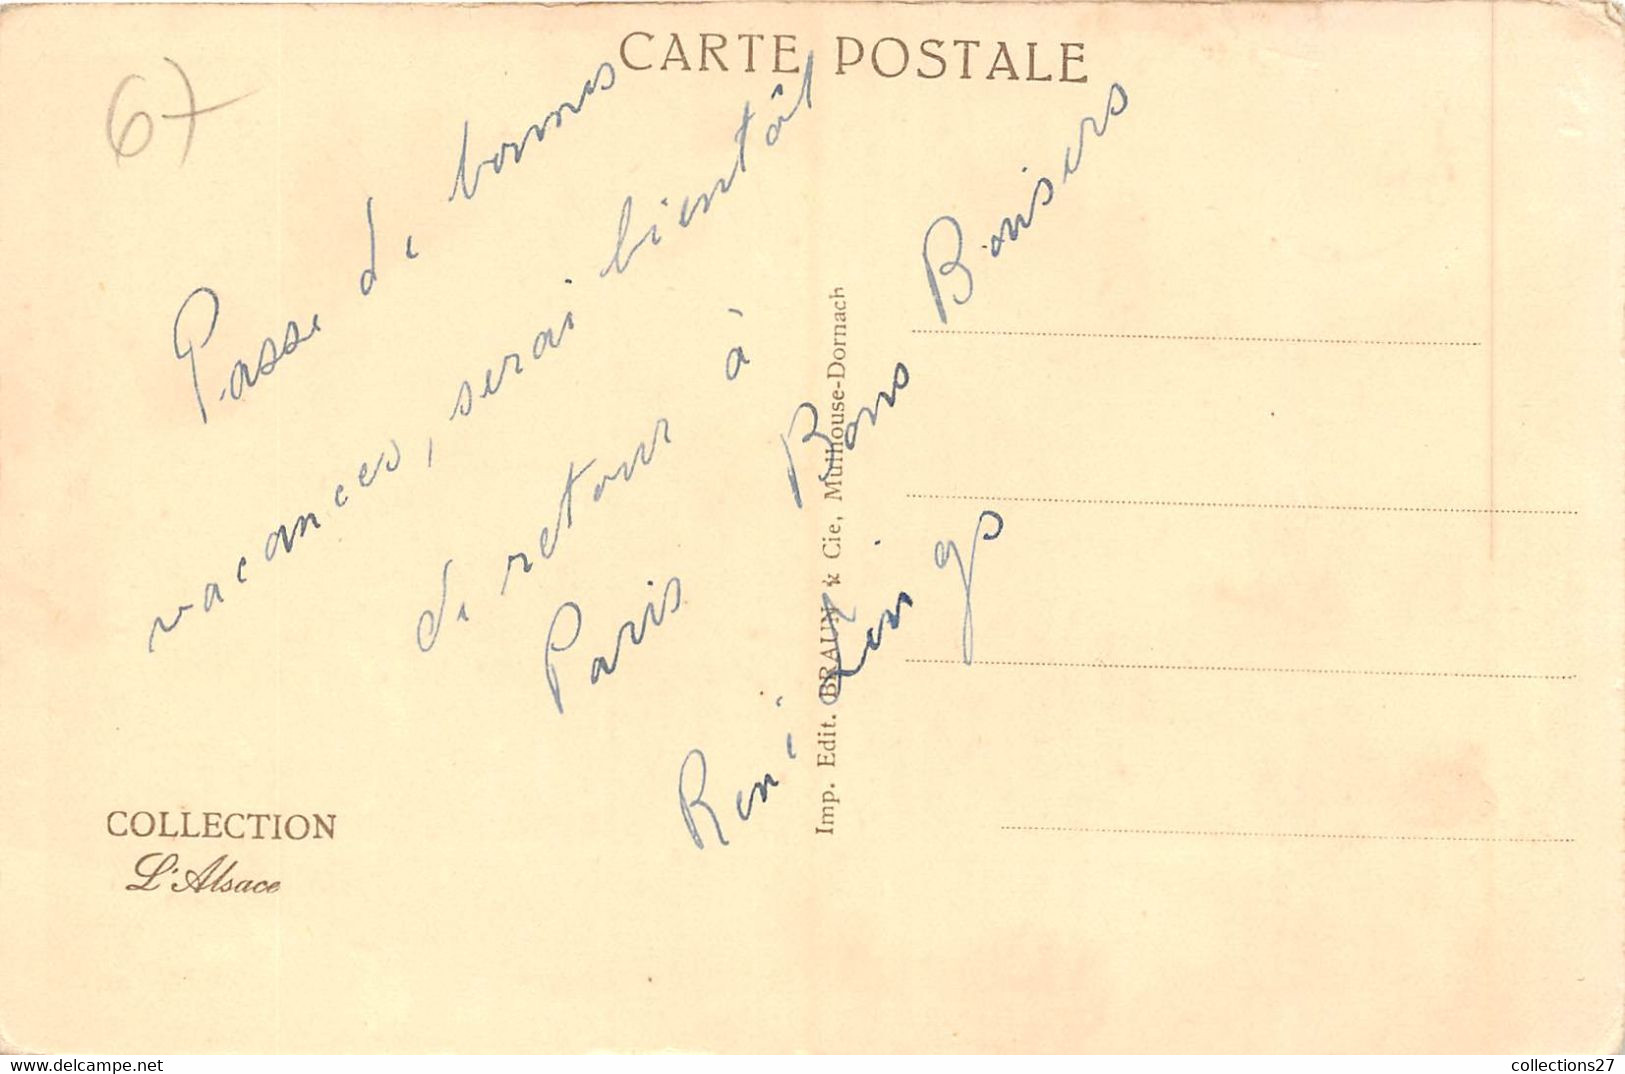 CARTE POSTALE
67
Passe de bonnes
vacances, serai bientôt
de retour à
Paris Bons Baisers
René
Imp. Edit. BRAUN & Cie, Mulhouse-Dornach
COLLECTION
L'Alsace
www.delcampe.net
collections27